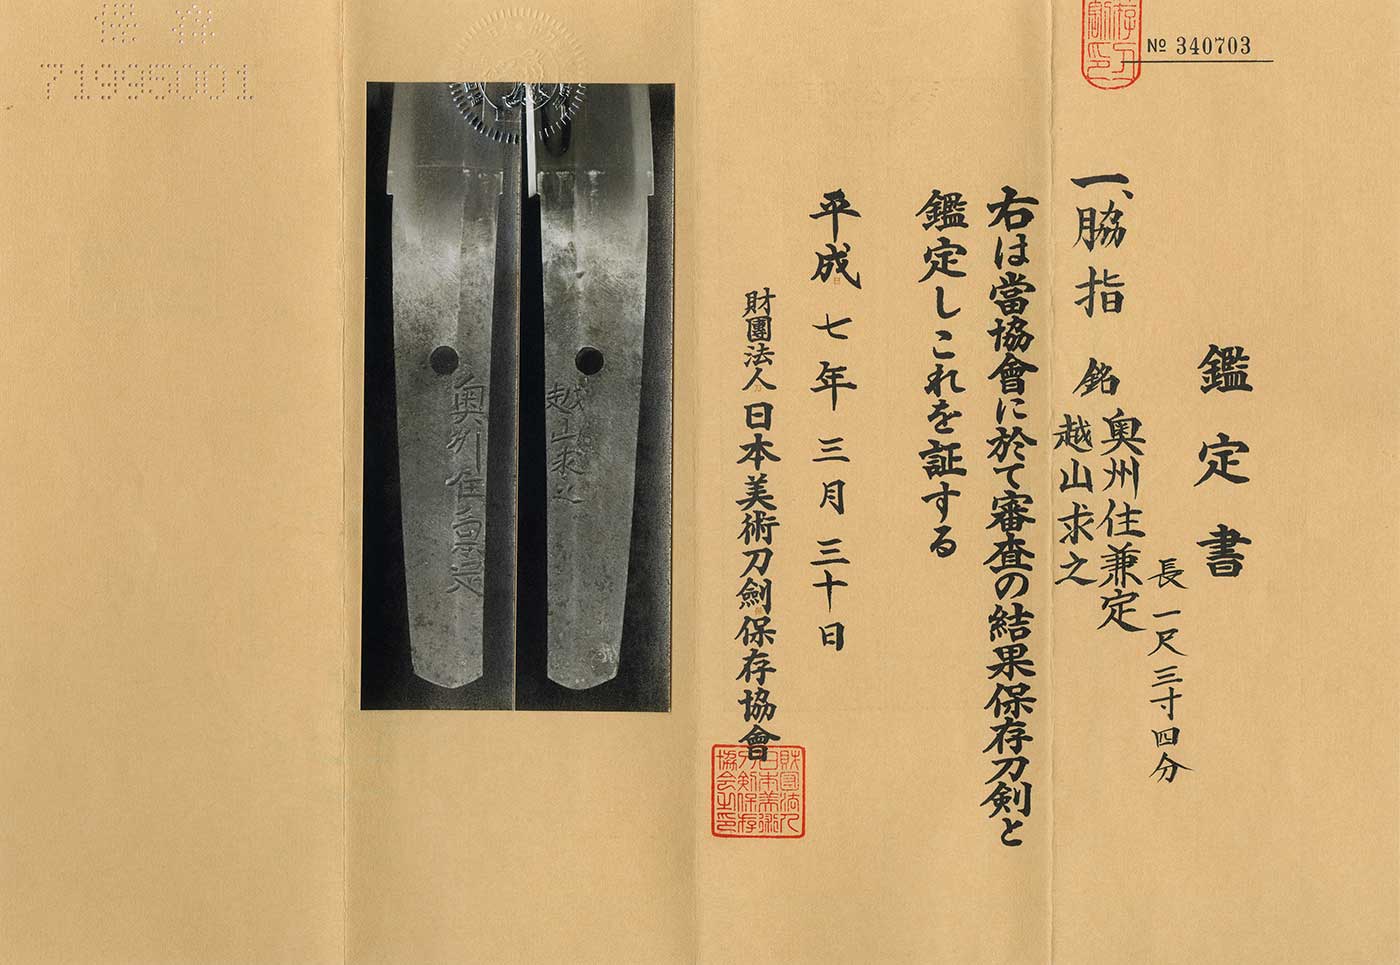 № 340703
鑑定書
一、脇指 銘 奥州住兼定
越山求之
長一尺三寸四分
右は當協會に於て審査の結果保存刀剣と
鑑定しこれを証する
平成七年三月三十日
財團法人日本美術刀劍保存協會
財団法人
日本美術
刀剣保存
協会之印
越山求之
奥州住兼定
保存
71995001